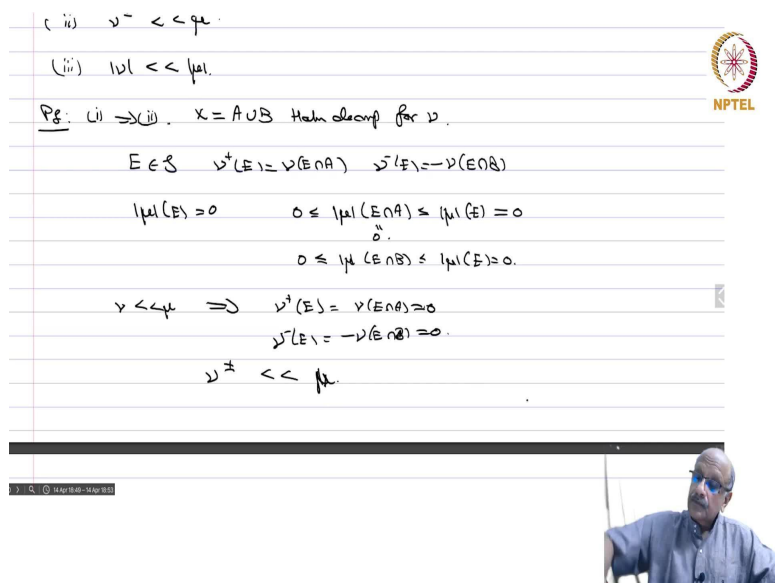 (ii) ν⁻ << μ.
(iii) |ν| << |μ|.
NPTEL
Pf: (i) ⇒ (ii). X = A∪B Hahn decomp for ν.
E ∈ S ν⁺(E) = ν(E∩A) ν⁻(E) = -ν(E∩B)
|μ|(E) = 0 0 ≤ |μ|(E∩A) ≤ |μ|(E) = 0
0 ≤ |μ|(E∩B) ≤ |μ|(E) = 0.
ν << μ ⇒ ν⁺(E) = ν(E∩A) = 0
ν⁻(E) = -ν(E∩B) = 0.
ν^± << μ.
14 Apr 18:49 - 14 Apr 18:53